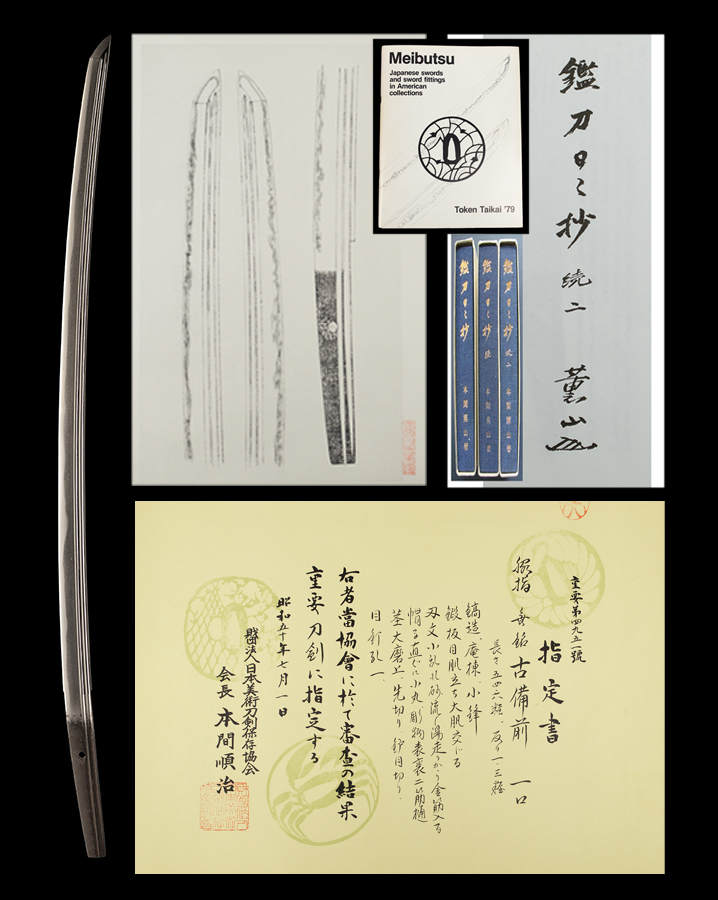 Meibutsu
Japanese swords
and sword fittings
in American
collections
Token Taikai '79
鑑刀日々抄 続二
薫山
鑑刀日々抄
本間薫山著
鑑刀日々抄 続
本間薫山著
鑑刀日々抄 続二
本間薫山著
重要第四九五二號
指定書
脇指 無銘 古備前 一口
長さ 五四・六糎、反り 一・三糎
鎬造、庵棟、小鋒
鍛 板目肌立ち大肌交じる
刃文 小乱れ砂流し湯走かゝり金筋入る
帽子 直ぐに小丸 彫物 表裏二筋樋
茎 大磨上、先切り 鑢目切り、
目釘孔一、
右者當協會に於て審査の結果
重要刀剣に指定する
昭和五十年七月一日
財團法人日本美術刀剣保存協会
会長 本間順治